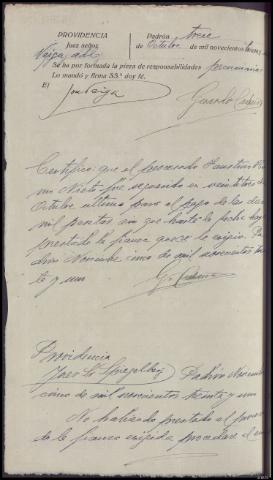 PROVIDENCIA
Juez señor
Padrón trece
de Octubre de mil novecientos
Se ha por formada la pieza de responsabilidades pecuniarias
Lo mandó y firma SSª doy fé.
El
Certifico: que el procesado Faustino
Nieto fué requerido en veintitres de
Octubre último para el pago de las diez
mil pesetas sin que hasta la fecha haya
prestado la fianza que se le exigió. Pa
drón Noviembre cinco de mil novecientos trein
ta y uno
Providencia
Juez Sr. Padrón Noviembre
cinco de mil novecientos treinta y uno
No habiendo prestado el procesa
do la fianza exigida, procédase al em